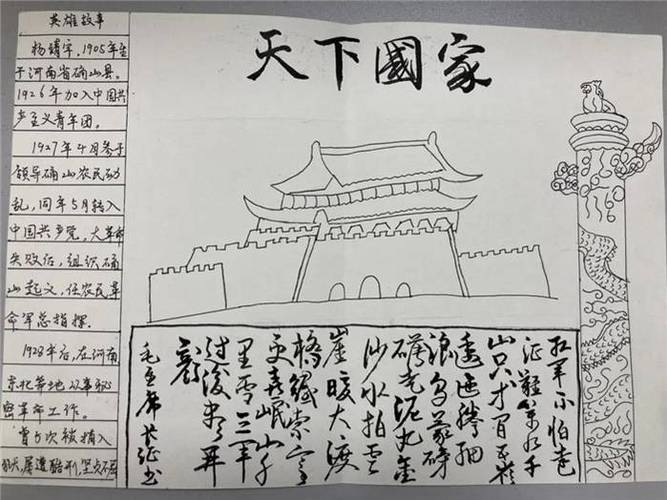 天下國家
英雄故事
杨靖宇，1905年生
于河南省确山县。
1926年加入中国共
产主义青年团。
1927年4月参于
领导确山农民动
乱，同年5月转入
中国共产党，大革命
失败后，组织确
山起义，任农民革
命军总指挥。
1928年后，在河南
东北等地从事秘
密革命工作。
曾五次被捕入
狱，屡遭酷刑，坚贞不屈
红军不怕远
征難万水千
山只等闲五岭
逶迤腾细
浪乌蒙磅
礴走泥丸金
沙水拍云
崖暖大渡
橋鐵索寒
更喜岷山千
里雪三军
过後尽开
颜
毛主席长征书